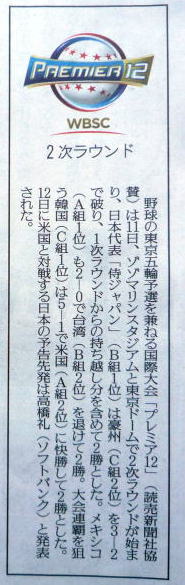 PREMIER 12
WBSC
2次ラウンド
野球の東京五輪予選を兼ねる国際大会「プレミア12」（読売新聞社協
賛）は11日、ゾゾマリンスタジアムと東京ドームで2次ラウンドが始ま
り、日本代表「侍ジャパン」（B組1位）は豪州（C組2位）を3―2
で破り、1次ラウンドからの持ち越し分を含めて2勝とした。メキシコ
（A組1位）も2―0で台湾（B組2位）を退けて2勝。大会連覇を狙
う韓国（C組1位）は5―1で米国（A組2位）に快勝して2勝とした。
12日に米国と対戦する日本の予告先発は高橋礼（ソフトバンク）と発表
された。